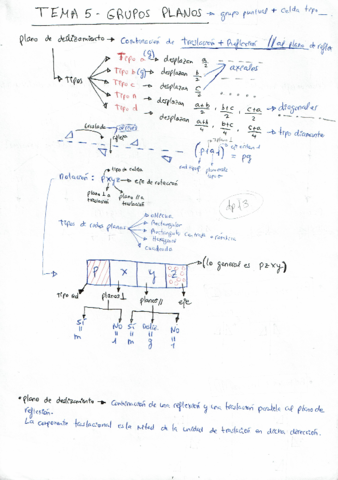 TEMA 5 - GRUPOS PLANOS → grupo puntual + celda tipo
plano de deslizamiento → Combinación de traslación + Reflexión // al plano de reflex
Tipos
Tipo a (g) → desplazan a/2
Tipo b (g) → desplazan b/2
Tipo c → desplazan c/2
Tipo n → desplazan a+b/2, b+c/2, c+a/2 → diagonales
Tipo d → desplazan a+b/4, b+c/4, c+a/4 → tipo diamante
axiales
traslada
refleja
(p1g1) = pg
Notación: pxyz → eje de rotación
tipo de celda
plano ⊥ a traslación
plano // a traslación
Tipos de redes planas
oblicua
Rectangular
Rectangular centrada
Hexagonal
cuadrada
p x y z → (lo general es pzxy)
Tipo red
plano ⊥
plano //
eje
Sí NO Sí NO
m 1 m g 1
• plano de deslizamiento → Combinación de una reflexión y una traslación paralela al plano de
reflexión.
La componente traslacional es la mitad de la unidad de traslación en dicha dirección.